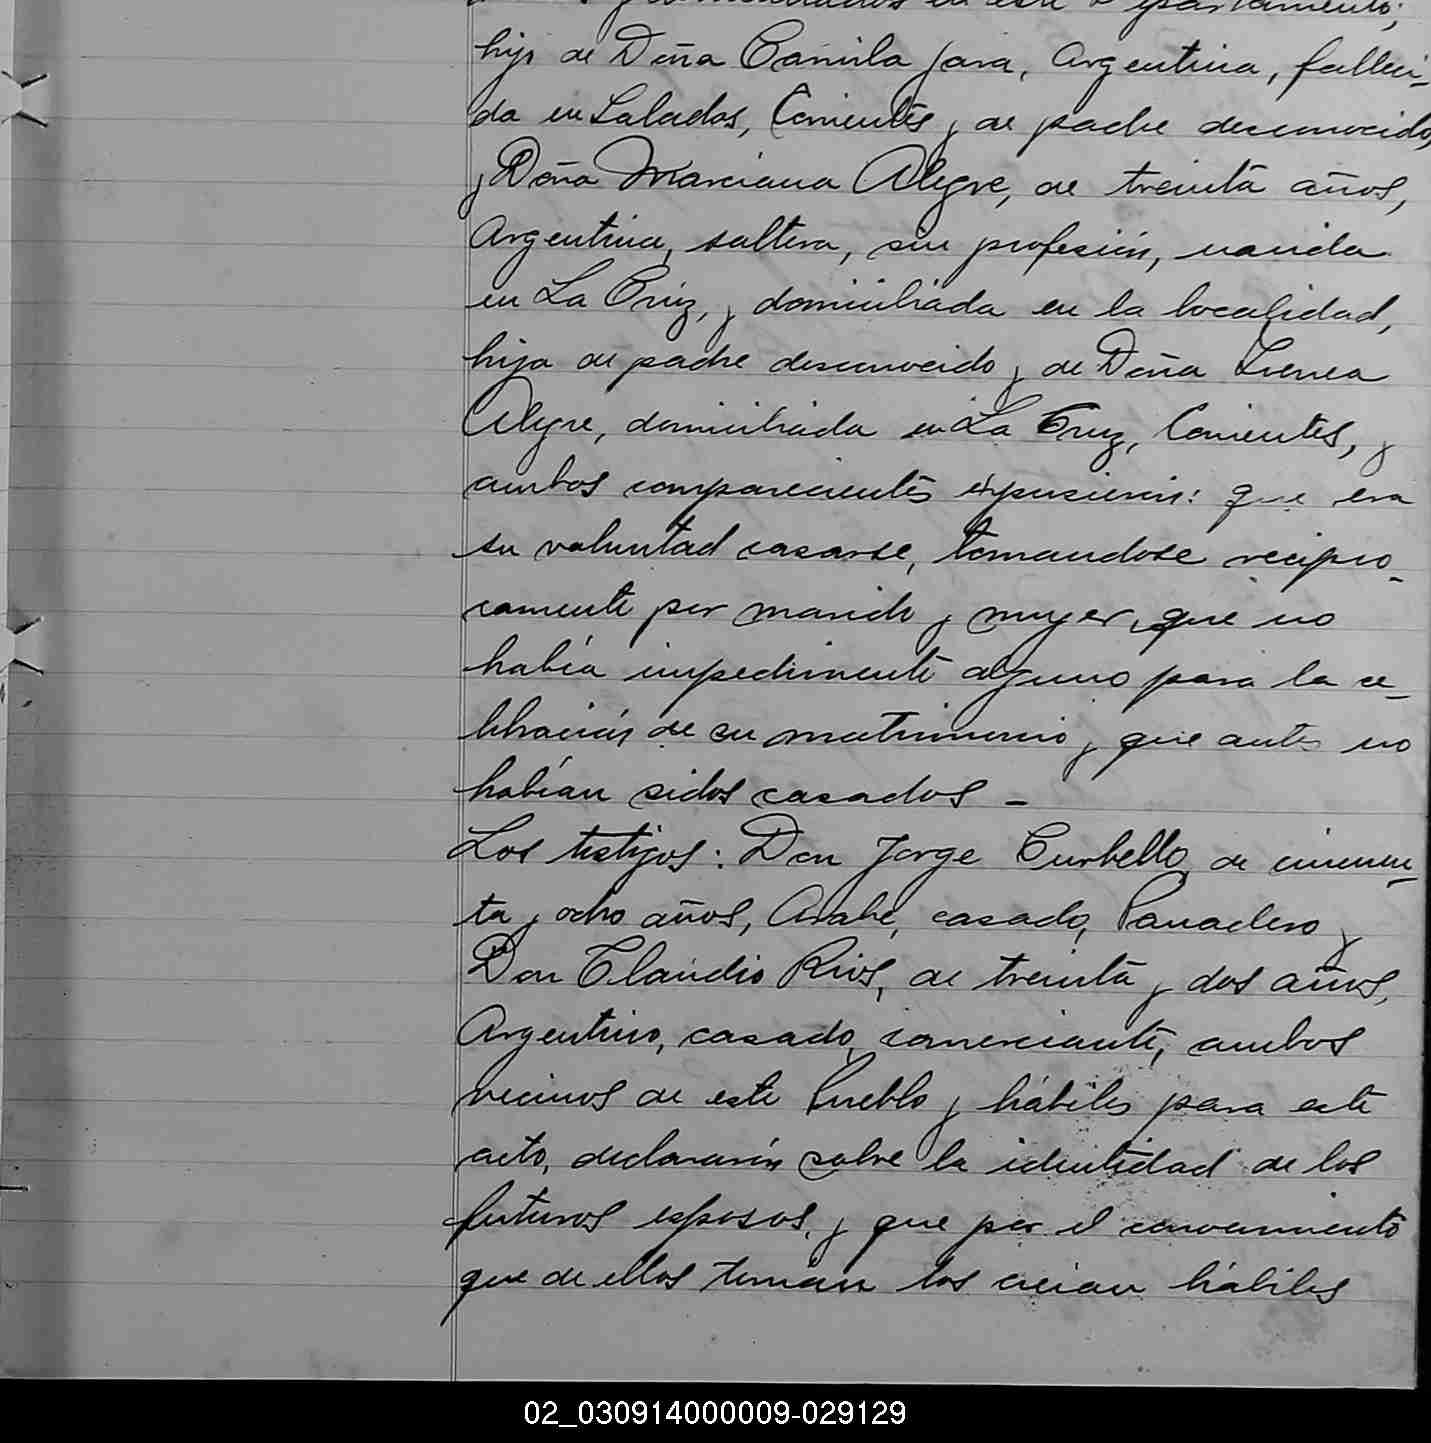 en este Departamento;
hijo de Doña Camila Jara, Argentina, falleci-
da en Saladas, Corrientes y de padre desconocido
y Doña Marciana Alegre, de treinta años,
Argentina, soltera, sin profesión, nacida
en La Cruz, y domiciliada en la localidad,
hija de padre desconocido y de Doña Irenea
Alegre, domiciliada en La Cruz, Corrientes, y
ambos comparecientes expusieron: que era
su voluntad casarse, tomandose recipro-
camente por marido y mujer, que no
había impedimento alguno para la ce-
lebración de su matrimonio y que antes no
habían sidos casados -
Los testigos: Don Jorge Curbello, de cincuen-
ta y ocho años, Arabe, casado, Panadero y
Don Claudio Rios, de treinta y dos años,
Argentino, casado, comerciante, ambos
vecinos de este Pueblo y hábiles para este
acto, declararon sobre la identidad de los
futuros esposos, y que por el conocimiento
que de ellos tenían los creian hábiles
02_030914000009-029129